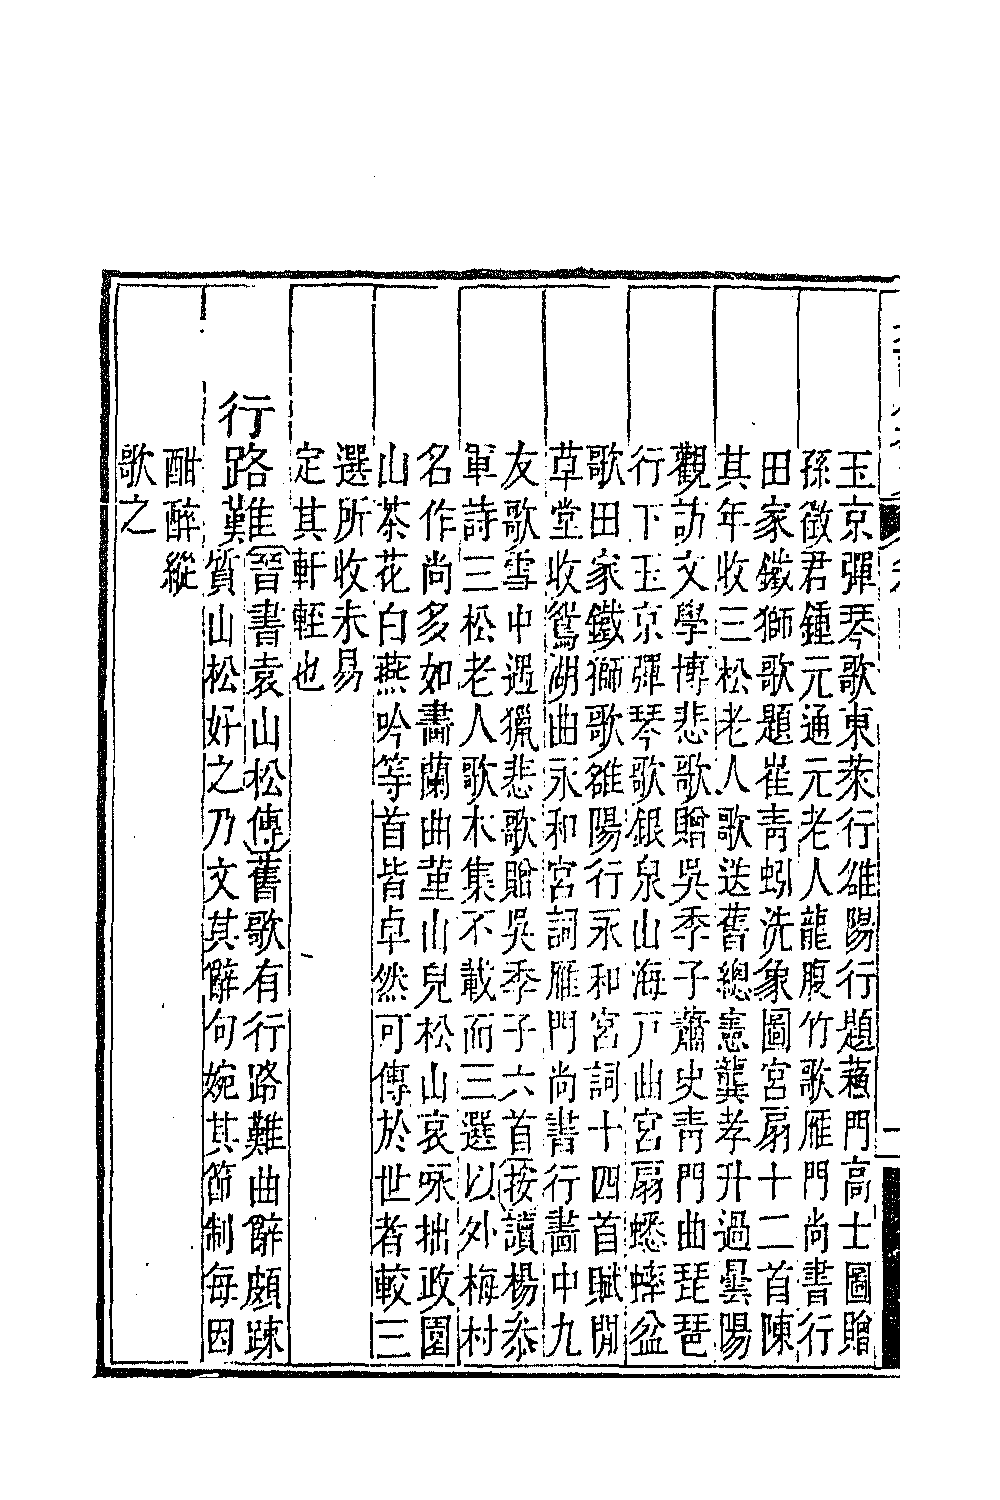 玉京彈琴歌東萊行雒陽行題蘓門高士圖贈
孫徵君鍾元通元老人龍腹竹歌雁門尚書行
田家鐵獅歌題崔青蚓洗象圖宮扇十二首陳
其年收三松老人歌送舊總憲龔孝升過曇陽
觀訪文學博悲歌贈吳季子蕭史青門曲琵琶
行下玉京彈琴歌銀泉山海戸曲宮扇蟋蟀盆
歌田家鐵獅歌雒陽行永和宮詞十四首賦閒
草堂收鴛湖曲永和宮詞雁門尚書行畵中九
友歌雪中遇獵悲歌贈吳季子六首按讀楊叅
軍詩三松老人歌木集不載而三選以外梅村
名作尚多如畵蘭曲堇山兒松山哀咏拙政園
山茶花白燕吟等首皆卓然可傳於世者較三
選所收未易
定其軒輊也
行路難晉書袁山松傳舊歌有行路難曲辭頗踈
質山松好之乃文其辭句婉其節制每因
酣醉縱
歌之